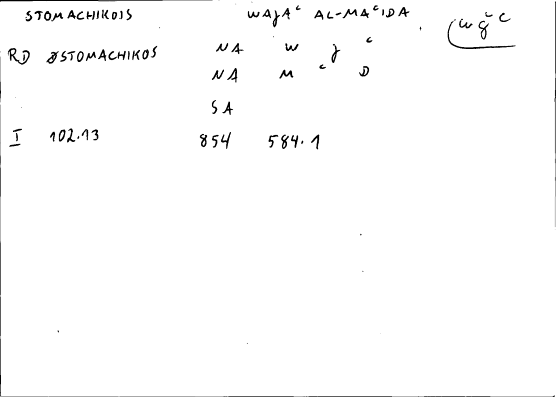 STOMACHIKOIS WAJAᶜ AL-MAᶜIDA wǧᶜ
RD STOMACHIKOS NA W J ᶜ
NA M ᶜ D
SA
I 102.13 854 584.1